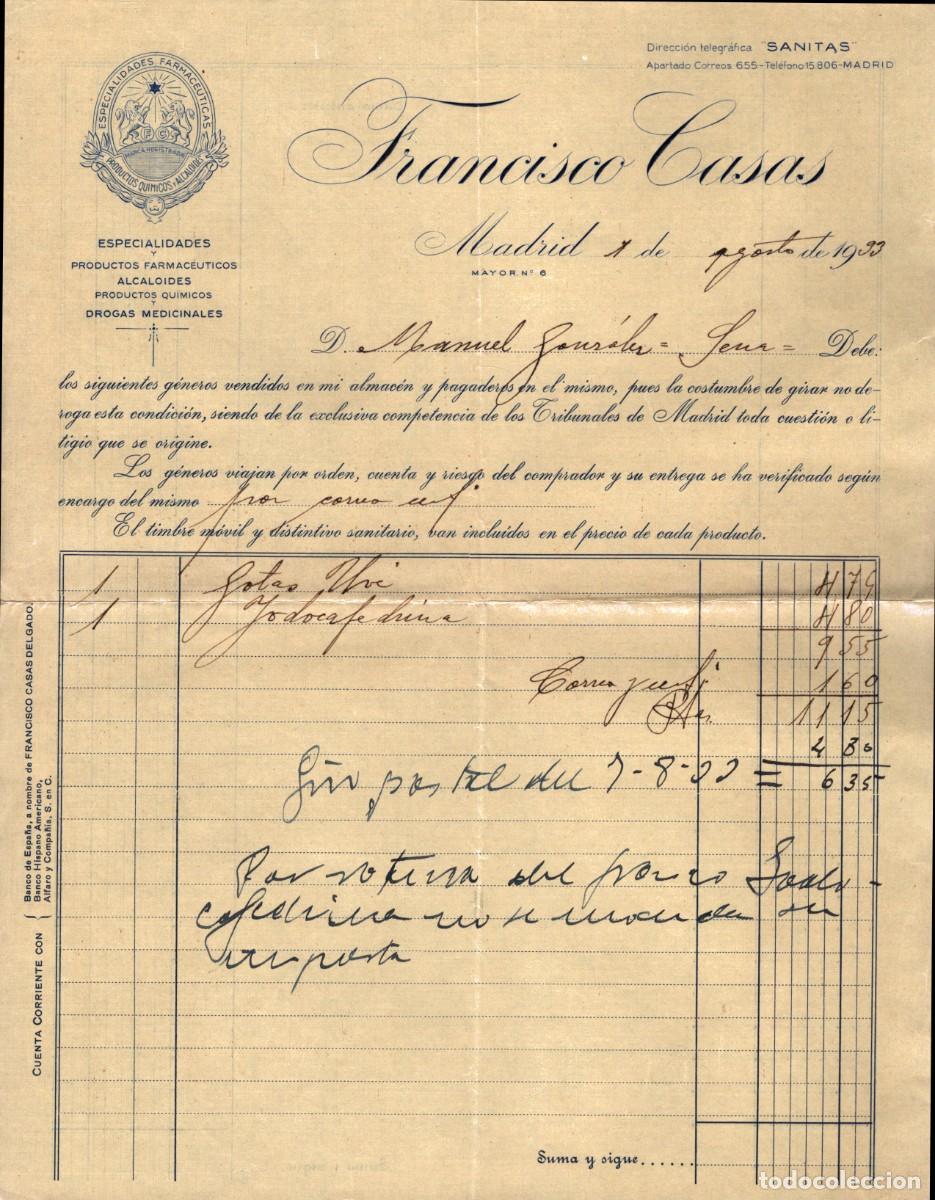 Dirección telegráfica "SANITAS"
Apartado Correos 655-Teléfono 15.806-MADRID
ESPECIALIDADES FARMACÉUTICAS
F C
MARCA REGISTRADA
PRODUCTOS QUIMICOS Y ALCALOIDES
Francisco Casas
ESPECIALIDADES
Y
PRODUCTOS FARMACÉUTICOS
ALCALOIDES
PRODUCTOS QUIMICOS
Y
DROGAS MEDICINALES
Madrid 1 de agosto de 1933
MAYOR. Nº 6
D. Manuel González = Sena = Debe:
los siguientes géneros vendidos en mi almacén y pagaderos en el mismo, pues la costumbre de girar no de-
roga esta condición, siendo de la exclusiva competencia de los Tribunales de Madrid toda cuestión o li-
tigio que se origine.
Los géneros viajan por orden, cuenta y riesgo del comprador y su entrega se ha verificado según
encargo del mismo por correo
El timbre móvil y distintivo sanitario, van incluídos en el precio de cada producto.
1 Gotas Uve 4 75
1 Yodocafedrina 4 80
9 55
Correo 1 60
Ptas. 11 15
4 80
Giro postal del 7-8-33 = 6 35
Por rotura del frasco Iodo-
cafedrina no se manda su
importe
Suma y sigue......
CUENTA CORRIENTE CON
Banco de España, a nombre de FRANCISCO CASAS DELGADO.
Banco Hispano Americano,
Alfaro y Compañía, S. en C.
todocoleccion